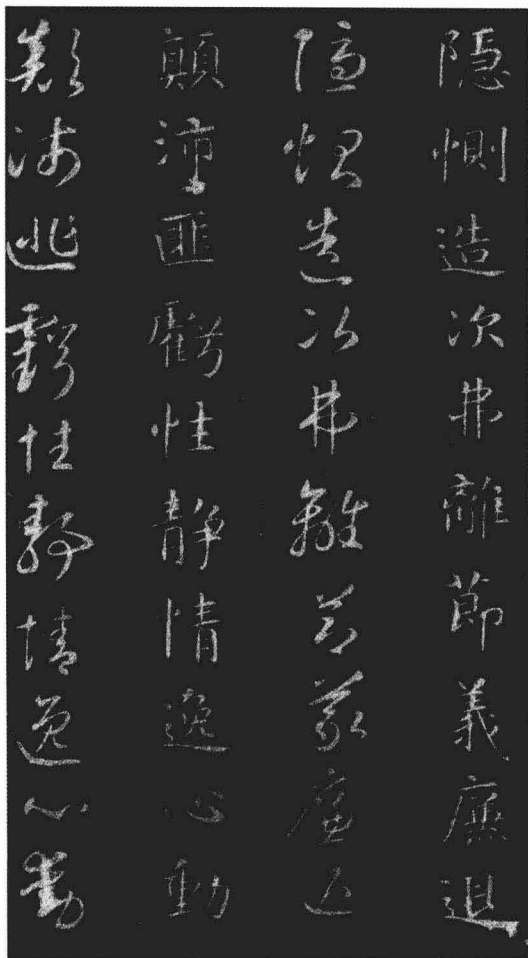 隐惻造次弗離節義廉退
隐惻造次弗離節義廉退
顛沛匪虧性靜情逸心動
顛沛匪虧性靜情逸心動